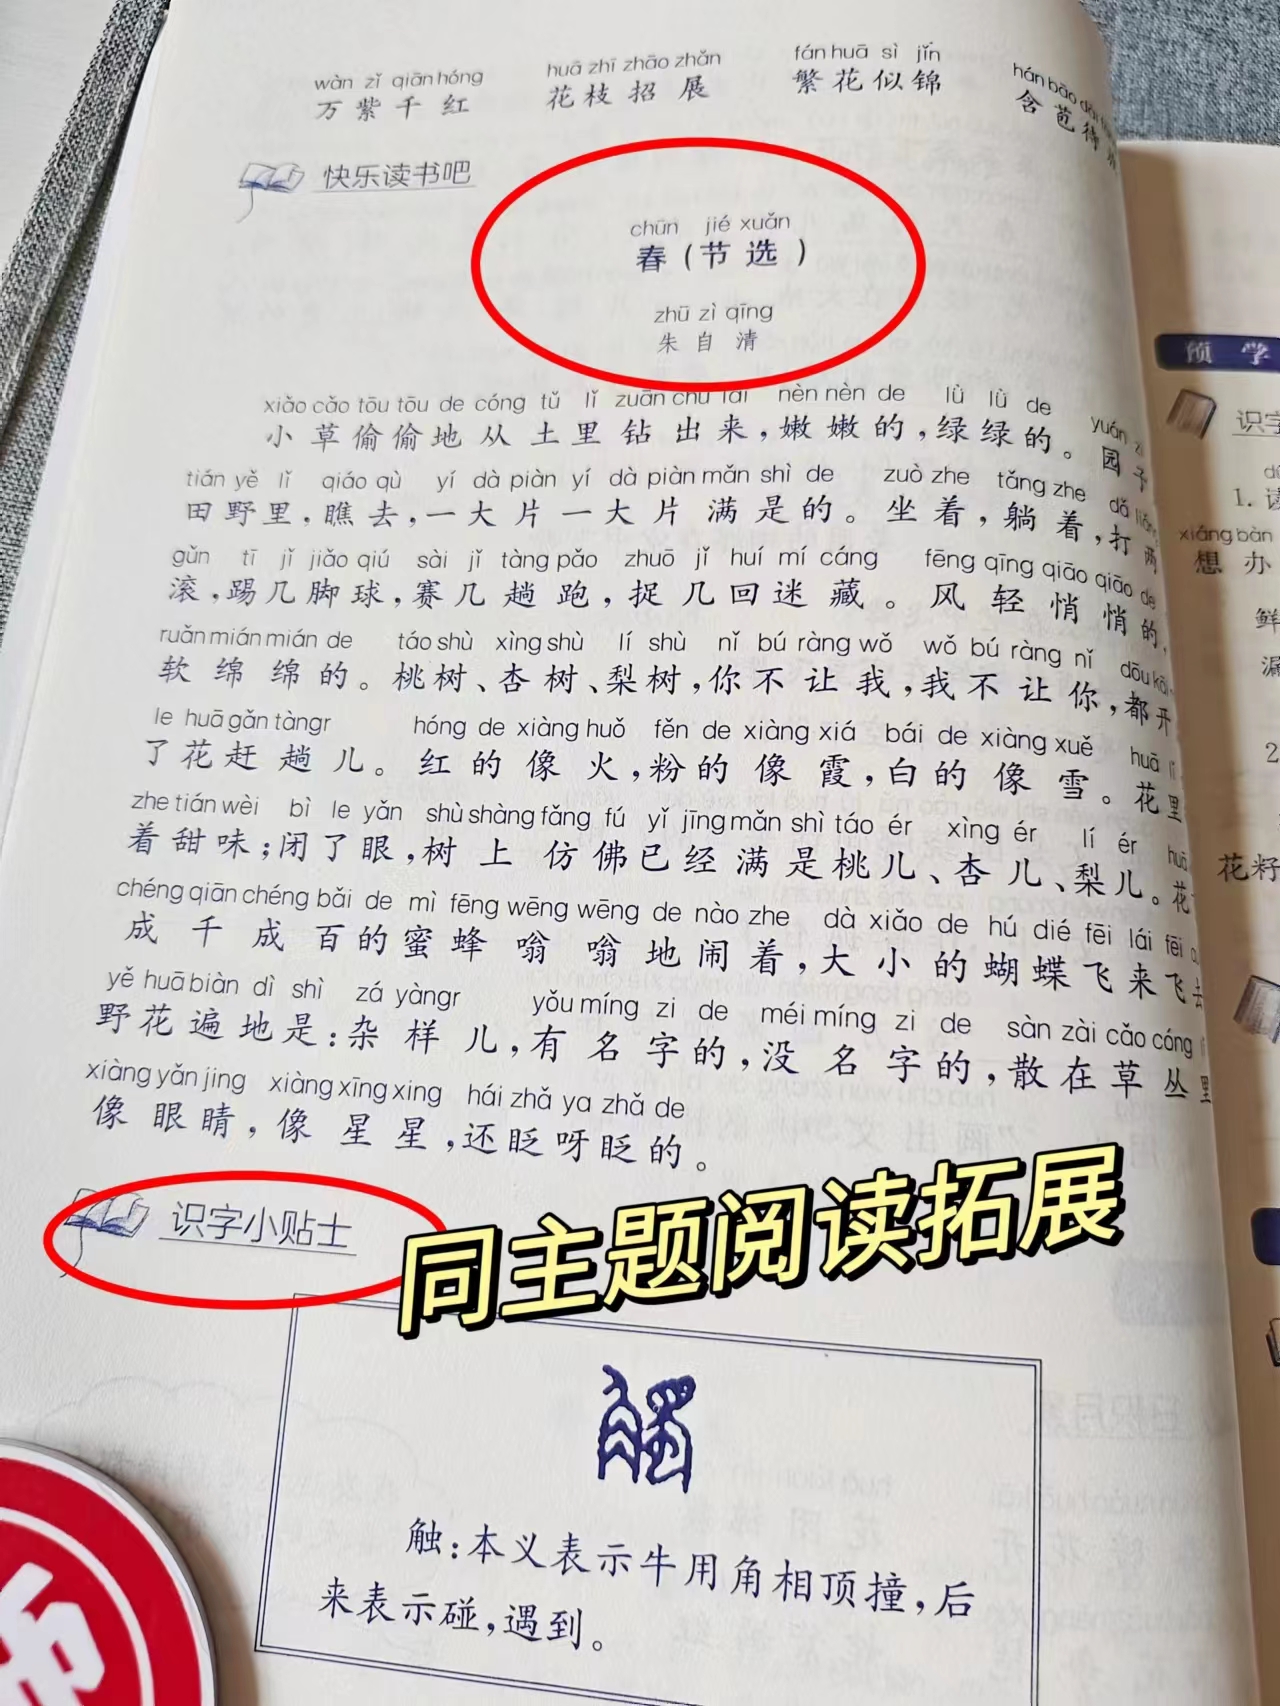 wàn zǐ qiān hóng huā zhī zhāo zhǎn fán huā sì jǐn hán bāo dài
万紫千红 花枝招展 繁花似锦 含苞待
快乐读书吧
chūn jié xuǎn
春(节选)
zhū zì qīng
朱自清
xiǎo cǎo tōu tōu de cóng tǔ lǐ zuān chū lái nèn nèn de lǜ lǜ de yuán zi
小草偷偷地从土里钻出来,嫩嫩的,绿绿的。园子
tián yě lǐ qiáo qù yí dà piàn yí dà piàn mǎn shì de zuò zhe tǎng zhe dǎ liǎng
田野里,瞧去,一大片一大片满是的。坐着,躺着,打两
gǔn tī jǐ jiǎo qiú sài jǐ tàng pǎo zhuō jǐ huí mí cáng fēng qīng qiāo qiāo de
滚,踢几脚球,赛几趟跑,捉几回迷藏。风轻悄悄的,
ruǎn mián mián de táo shù xìng shù lí shù nǐ bú ràng wǒ wǒ bú ràng nǐ dōu kāi
软绵绵的。桃树、杏树、梨树,你不让我,我不让你,都开
le huā gǎn tàngr hóng de xiàng huǒ fěn de xiàng xiá bái de xiàng xuě huā lǐ
了花赶趟儿。红的像火,粉的像霞,白的像雪。花里
zhe tián wèi bì le yǎn shù shàng fǎng fú yǐ jīng mǎn shì táo ér xìng ér lí ér huā
着甜味;闭了眼,树上仿佛已经满是桃儿、杏儿、梨儿。花
chéng qiān chéng bǎi de mì fēng wēng wēng de nào zhe dà xiǎo de hú dié fēi lái fēi
成千成百的蜜蜂嗡嗡地闹着,大小的蝴蝶飞来飞去
yě huā biàn dì shì zá yàngr yǒu míng zi de méi míng zi de sàn zài cǎo cóng
野花遍地是:杂样儿,有名字的,没名字的,散在草丛里
xiàng yǎn jing xiàng xīng xing hái zhǎ ya zhǎ de
像眼睛,像星星,还眨呀眨的。
识字小贴士
同主题阅读拓展
触:本义表示牛用角相顶撞,后
来表示碰,遇到。
预学
识字
1.读
xiǎng bàn
想办
鲜
漏
2
花籽